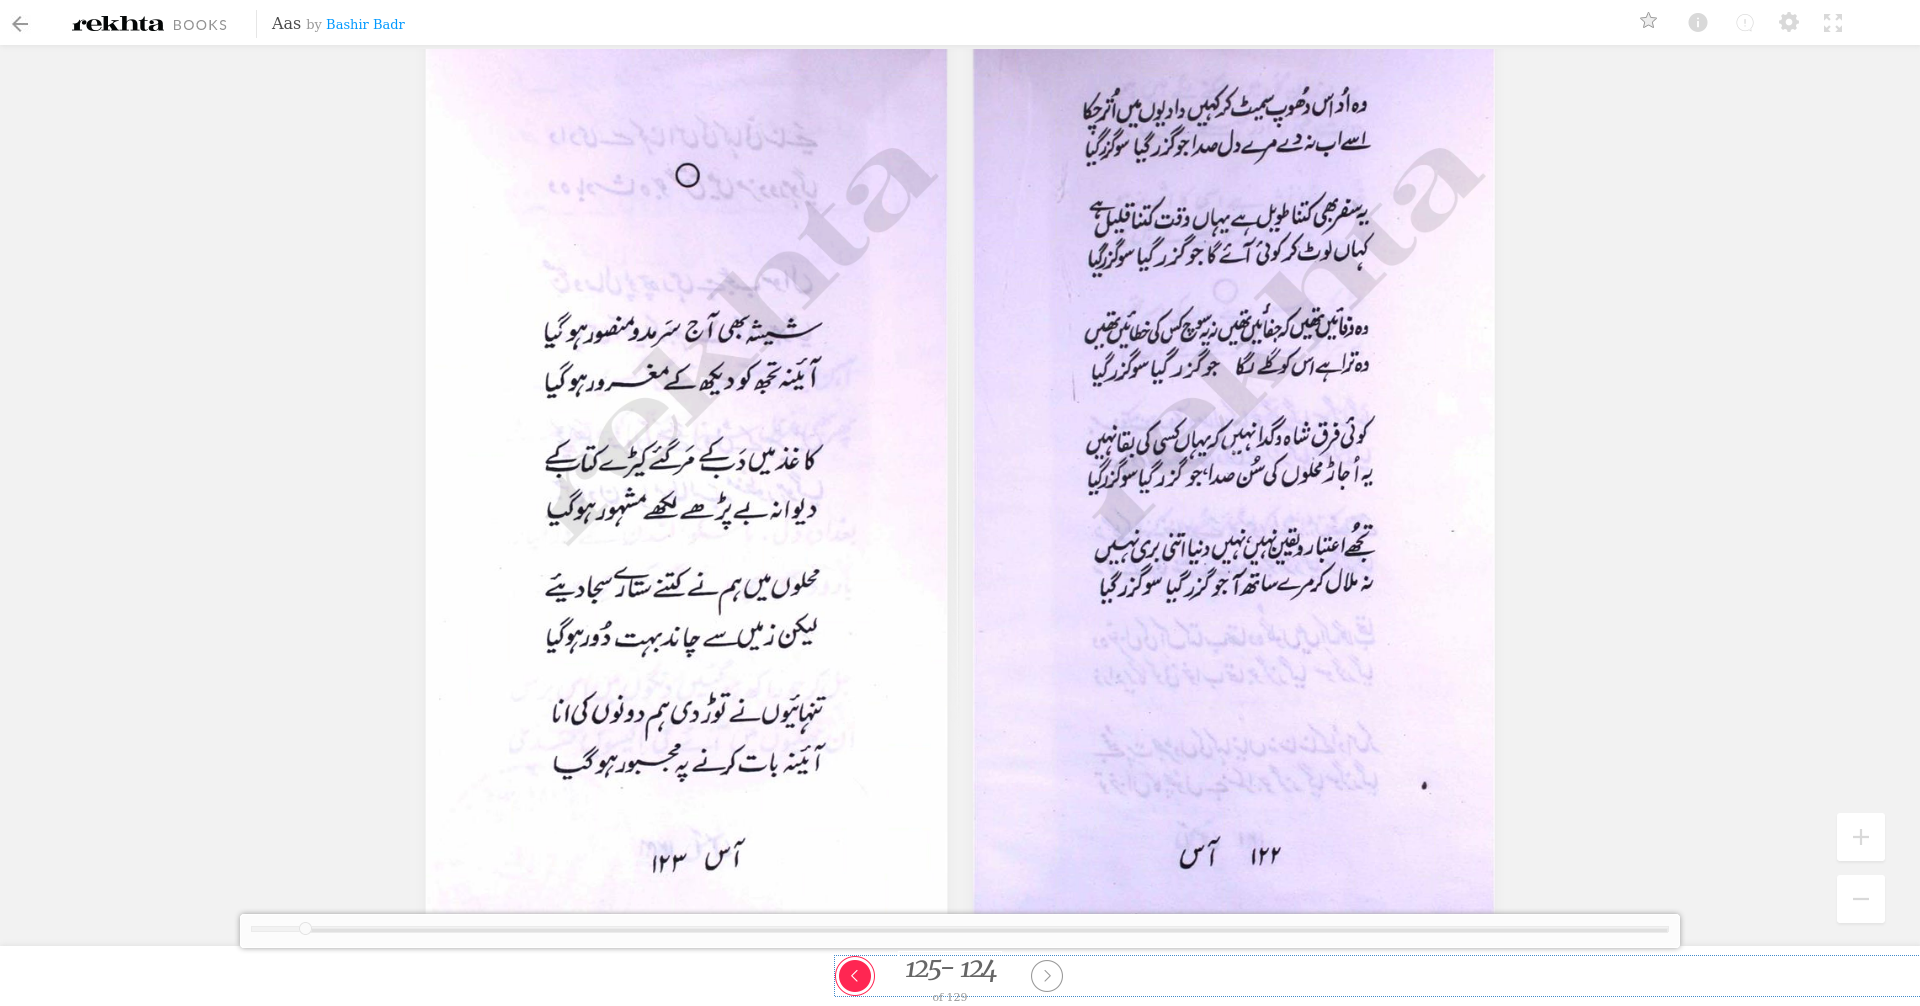 rekhta BOOKS Aas by Bashir Badr
وہ اُداس دُھوپ سمیٹ کر کہیں وادیوں میں اُتر چکا
اسے اب نہ دے مرے دل صدا جو گزر گیا سو گزر گیا
یہ سفر بھی کتنا طویل ہے یہاں وقت کتنا قلیل ہے
کہاں لوٹ کر کوئی آئے گا جو گزر گیا سو گزر گیا
وہ وفائیں تھیں کہ جفائیں تھیں نہ یہ سوچ کس کی خطائیں تھیں
وہ ترا ہے اس کو گلے لگا جو گزر گیا سو گزر گیا
کوئی فرق شاہ و گدا نہیں کہ یہاں کسی کی بقا نہیں
یہ اُجاڑ محلوں کی سُن صدا، جو گزر گیا سو گزر گیا
تجھے اعتبار و یقین نہیں، نہیں دنیا اتنی بری نہیں
نہ ملال کر مرے ساتھ آ جو گزر گیا سو گزر گیا
۱۲۲ آس
شیشہ بھی آج سَرمد و منصور ہو گیا
آئینہ تجھ کو دیکھ کے مغرور ہو گیا
کاغذ میں دَب کے مَر گئے کیڑے کتاب کے
دیوانہ بے پڑھے لکھے مشہور ہو گیا
محلوں میں ہم نے کتنے ستارے سجا دیئے
لیکن زمیں سے چاند بہت دُور ہو گیا
تنہائیوں نے توڑ دی ہم دونوں کی انا
آئینہ بات کرنے پہ مجبور ہو گیا
آس ۱۲۳
rekhta
rekhta
125- 124
of 129